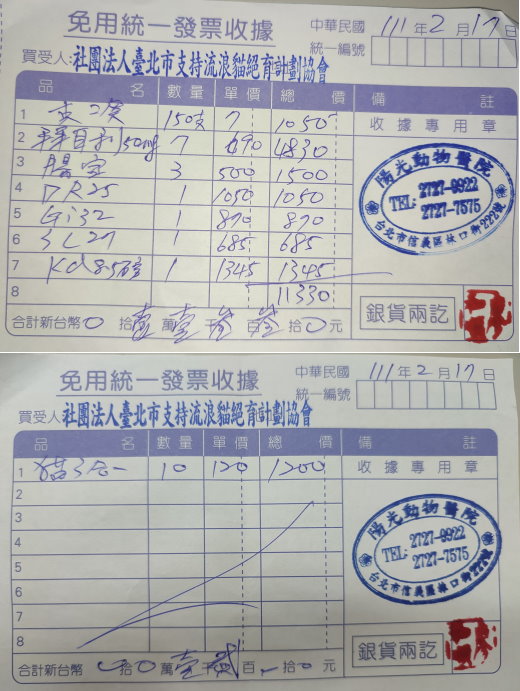 免用統一發票收據
中華民國 111 年 2 月 17 日
統一編號
買受人: 社團法人臺北市支持流浪貓絕育計劃協會
品名 數量 單價 總價 備註
1 150支 7 1050 收據專用章
2 150mg 7 690 4830
3 腸寶 3 500 1500
4 DR25 1 1050 1050
5 Gi32 1 870 870
6 SL27 1 685 685
7 Kd 8.5磅 1 1345 1345
8 11330
陽光動物醫院
TEL: 2727-9922
2727-7575
台北市信義區林口街222號
合計新台幣 0 拾 壹 萬 壹 千 叁 百 叁 拾 0 元
銀貨兩訖
免用統一發票收據
中華民國 111 年 2 月 17 日
統一編號
買受人: 社團法人臺北市支持流浪貓絕育計劃協會
品名 數量 單價 總價 備註
1 貓三合一 10 120 1200 收據專用章
2
3
4
5
6
7
8
陽光動物醫院
TEL: 2727-9922
2727-7575
台北市信義區林口街222號
合計新台幣 拾 0 萬 壹 千 貳 百 拾 0 元
銀貨兩訖